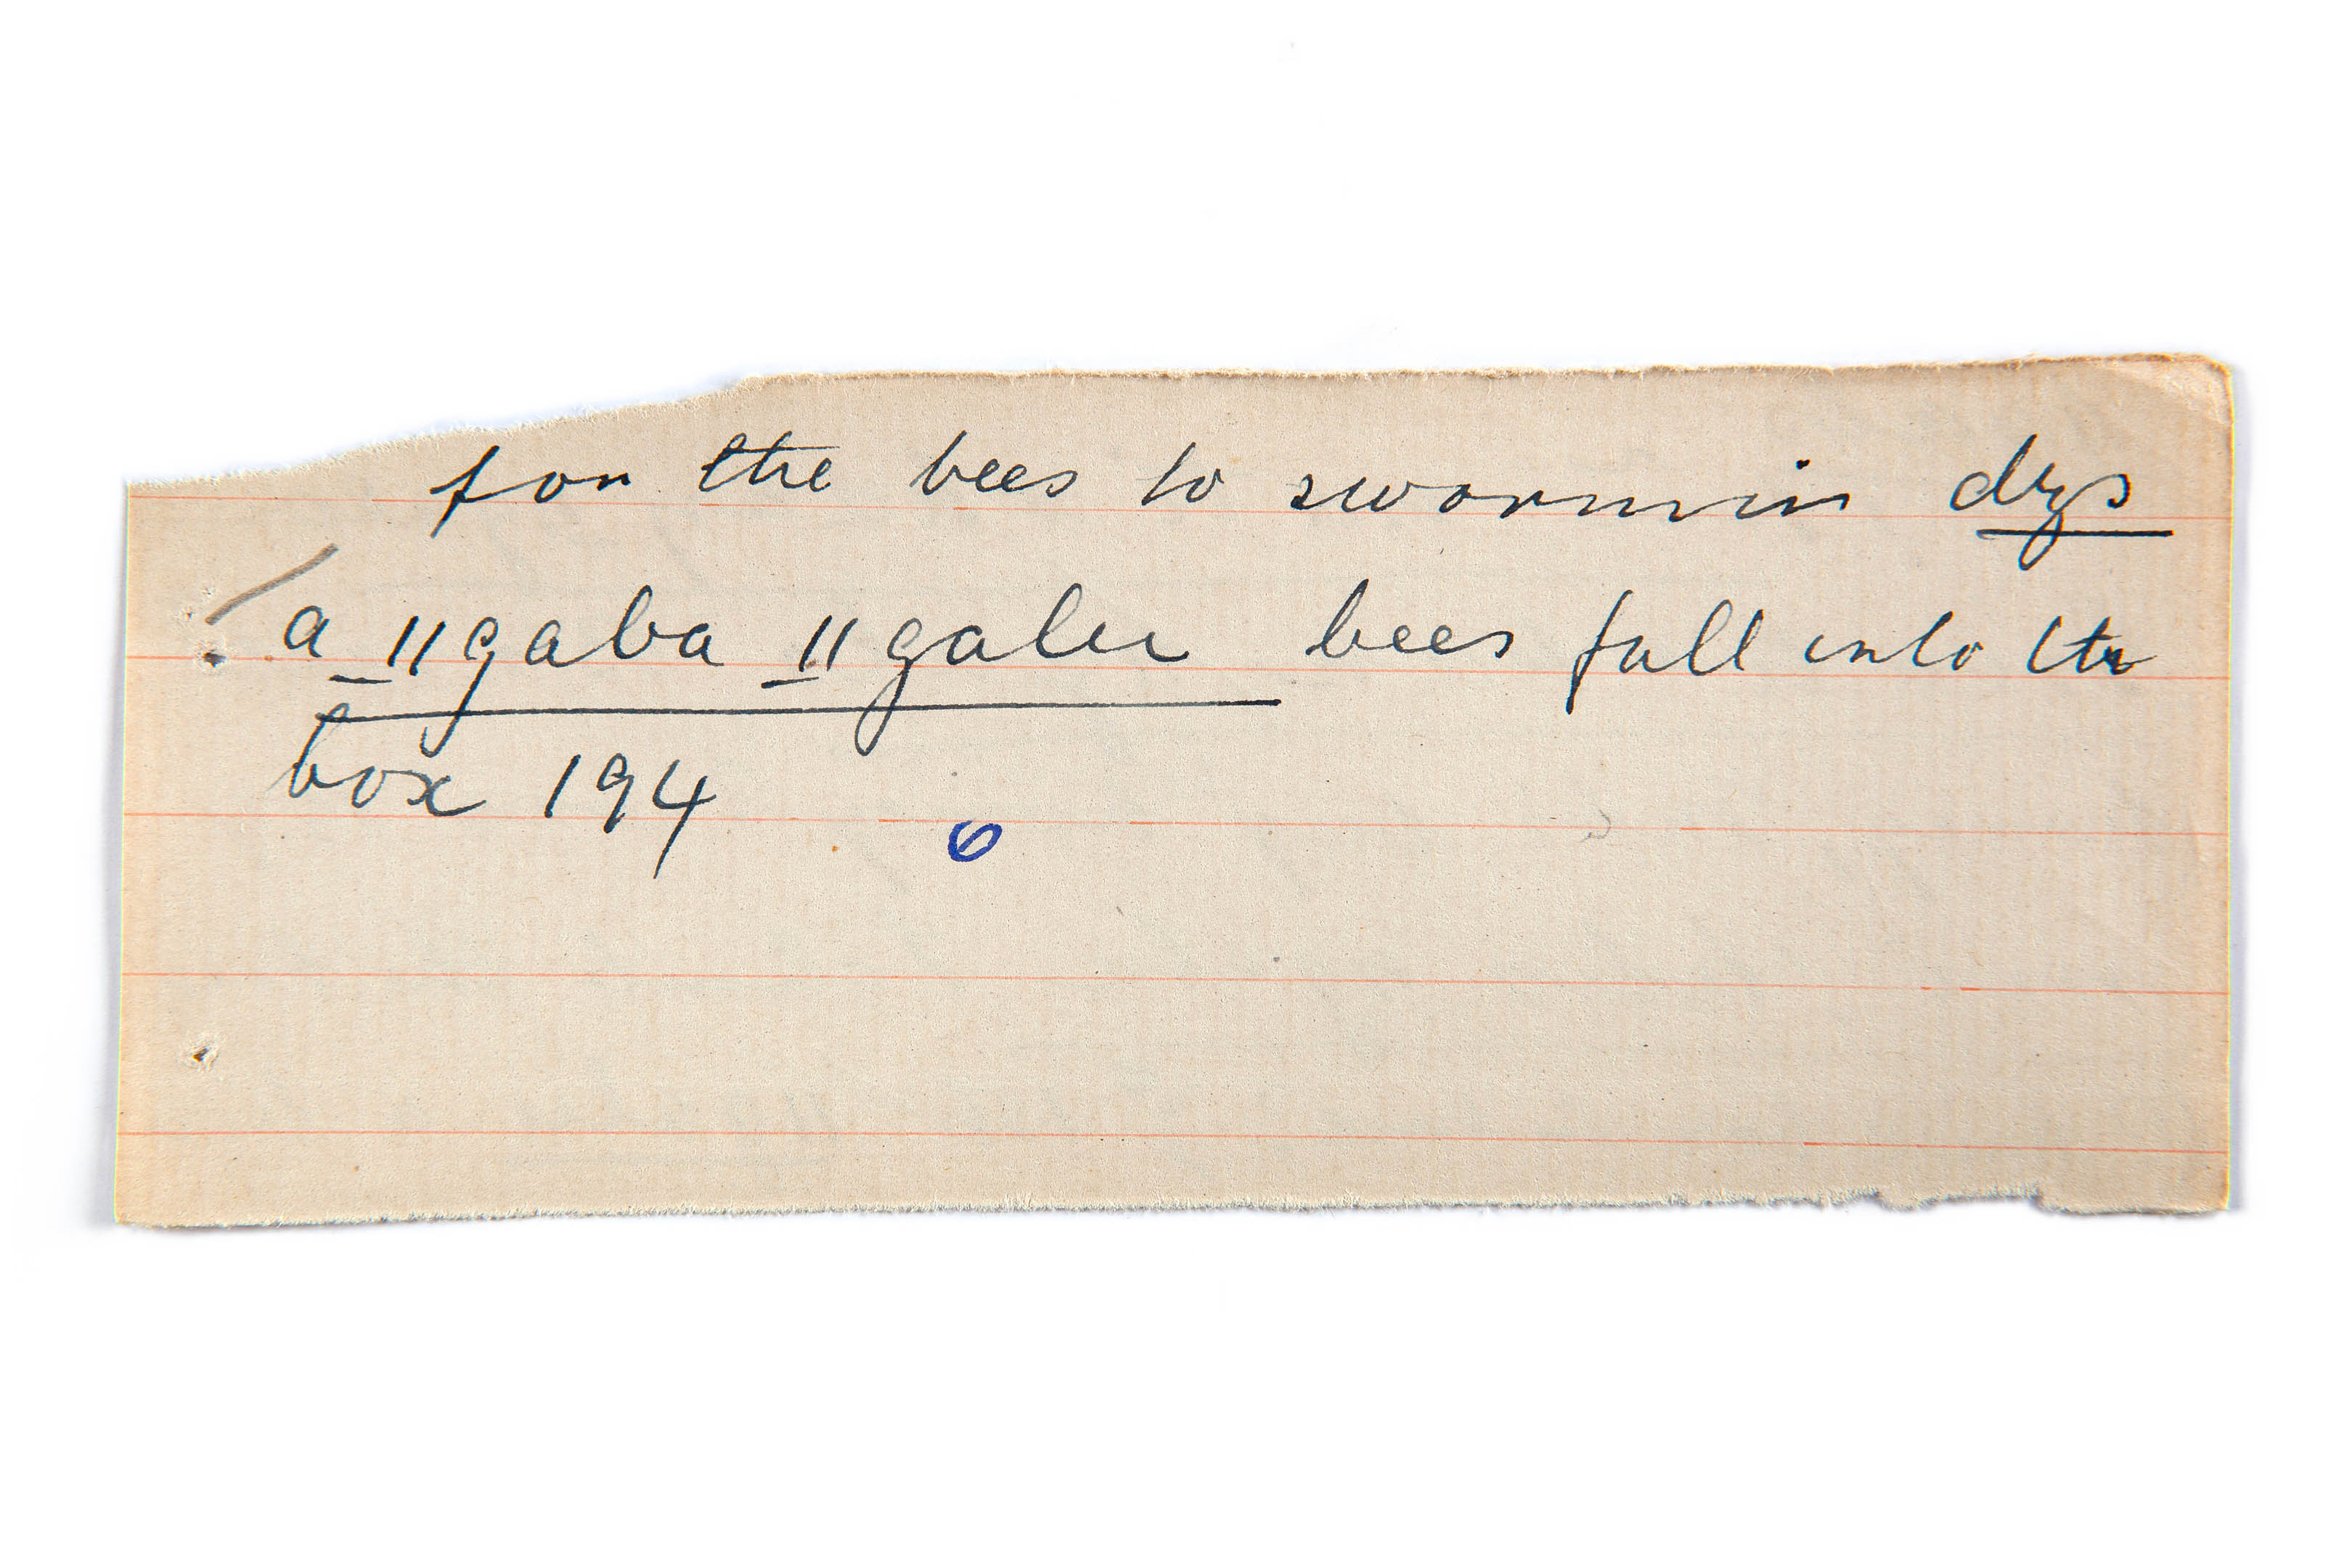 for the bees to swormin
a ‖gaba ‖galu bees fall into the
box 194
6